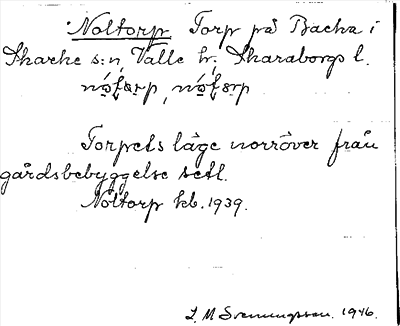 Noltorp Torp på Backa i
Skarke s:n, Valle hr, Skaraborgs l.
Torpets läge norröver från
gårdsbebyggelse setl.
Noltorp kb. 1939.
J. M. Svenningsson. 1946.